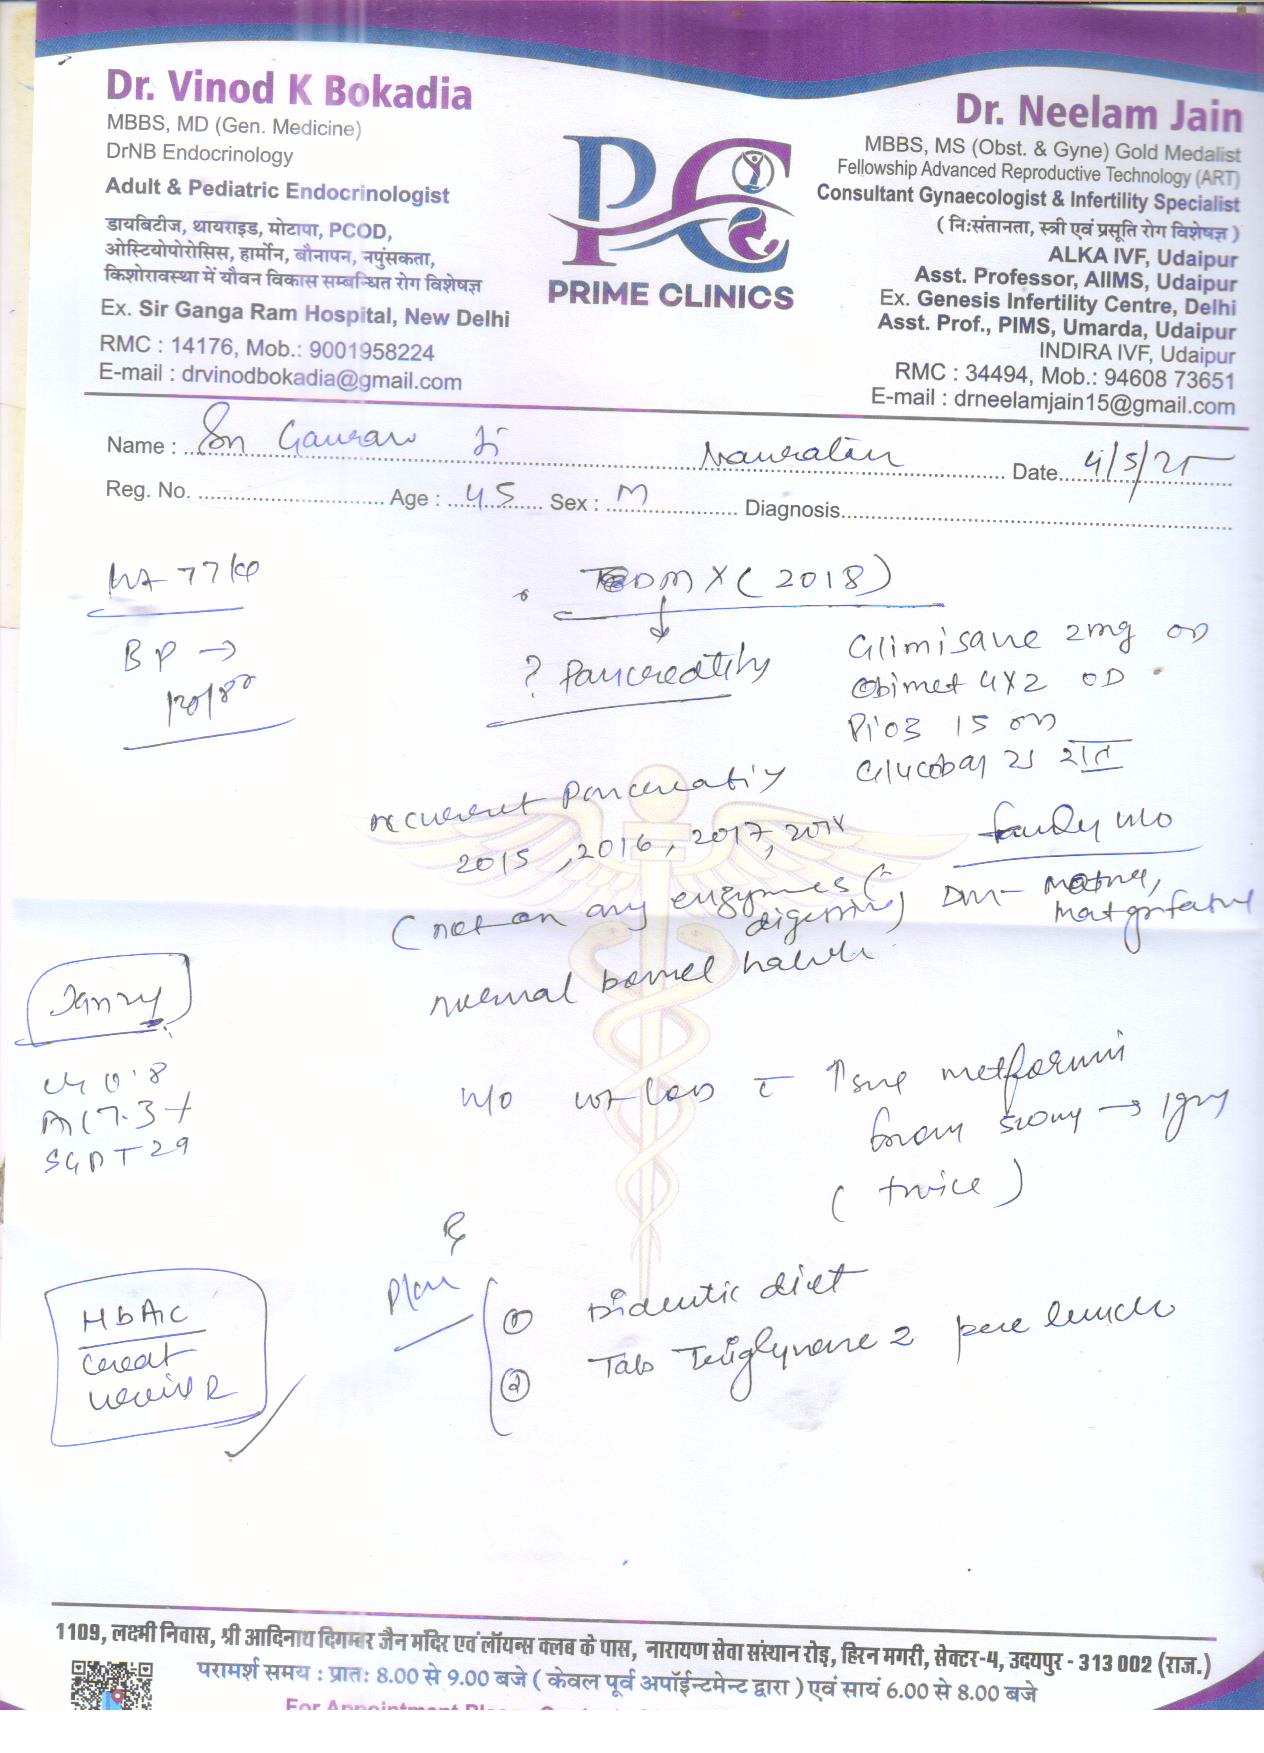 Dr. Vinod K Bokadia
MBBS, MD (Gen. Medicine)
DrNB Endocrinology
Adult & Pediatric Endocrinologist
डायबिटीज, थायराइड, मोटापा, PCOD,
ओस्टियोपोरोसिस, हार्मोन, बौनापन, नपुंसकता,
किशोरावस्था में यौवन विकास सम्बन्धित रोग विशेषज्ञ
Ex. Sir Ganga Ram Hospital, New Delhi
RMC : 14176, Mob.: 9001958224
E-mail : drvinodbokadia@gmail.com
PC
PRIME CLINICS
Dr. Neelam Jain
MBBS, MS (Obst. & Gyne) Gold Medalist
Fellowship Advanced Reproductive Technology (ART)
Consultant Gynaecologist & Infertility Specialist
( निःसंतानता, स्त्री एवं प्रसूति रोग विशेषज्ञ )
ALKA IVF, Udaipur
Asst. Professor, AIIMS, Udaipur
Ex. Genesis Infertility Centre, Delhi
Asst. Prof., PIMS, Umarda, Udaipur
INDIRA IVF, Udaipur
RMC : 34494, Mob.: 94608 73651
E-mail : drneelamjain15@gmail.com
Name : Gaurav Ji Date 4/5/25
Reg. No. Age : 45 Sex : M Diagnosis
77 kg
BP →
120/80
DM X (2018)
? Pancreatitis
Glimisave 2mg OD
Obimet 4X2 OD
Pio3 15 OD
Glucobay 25 रात
recurrent Pancreatitis
2015, 2016, 2017, 2018
(not on any enzymes (digestive)
normal bowel habits
DM - mother,
h/o wt loss c ↑sing metformin
from → 1gm
(twice)
0.8
A1C 7.3
SGPT 29
Rx
Plan
① diet
② Tab 2 pre lunch
HbA1c
Creat
1109, लक्ष्मी निवास, श्री आदिनाथ दिगम्बर जैन मंदिर एवं लॉयन्स क्लब के पास, नारायण सेवा संस्थान रोड़, हिरन मगरी, सेक्टर-4, उदयपुर - 313 002 (राज.)
परामर्श समय : प्रातः 8.00 से 9.00 बजे ( केवल पूर्व अपॉईन्टमेन्ट द्वारा ) एवं सायं 6.00 से 8.00 बजे
For Appointment